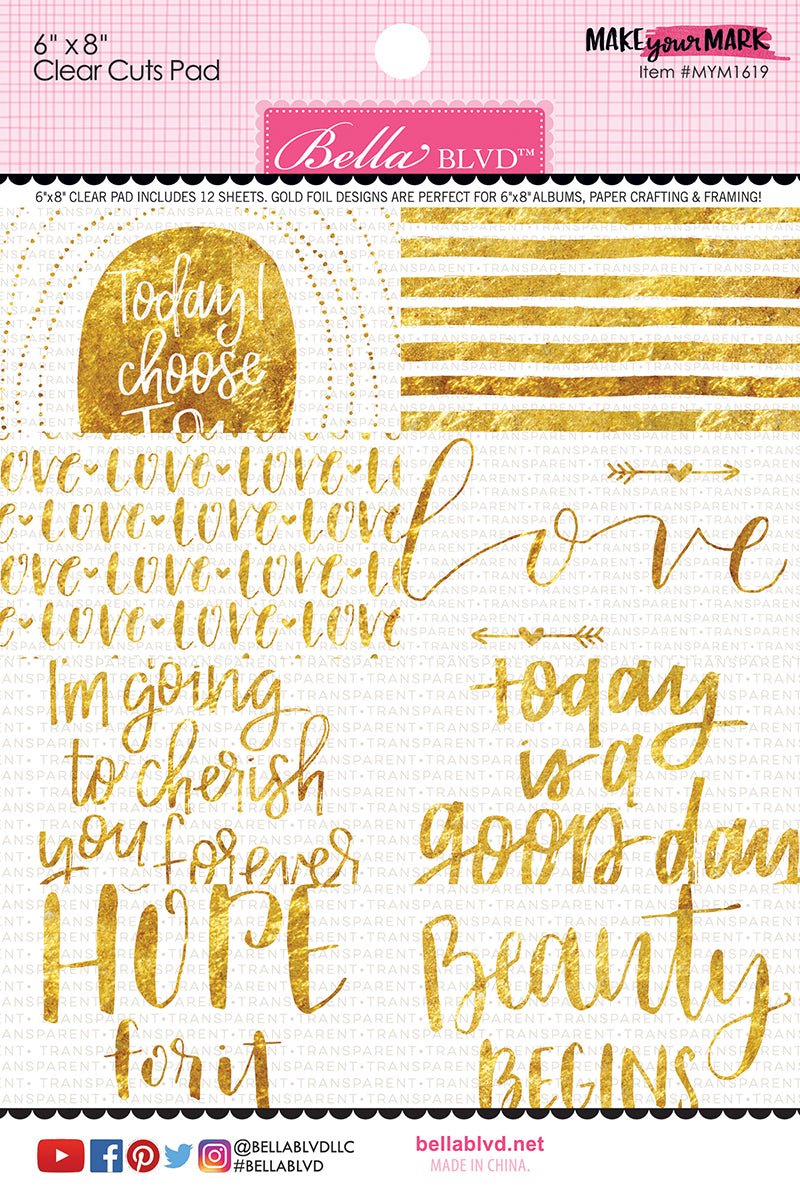 6" x 8"
Clear Cuts Pad
MAKE your MARK
Item #MYM1619
Bella BLVD™
6"x8" CLEAR PAD INCLUDES 12 SHEETS. GOLD FOIL DESIGNS ARE PERFECT FOR 6"x8" ALBUMS, PAPER CRAFTING & FRAMING!
Today I
choose
LOVE LOVE LOVE LOVE
LOVE LOVE LOVE
LOVE LOVE LOVE LOVE
LOVE LOVE LOVE
love
I'm going
to cherish
you forever
today
is a
good day
HOPE
for it
Beauty
BEGINS
TRANSPARENT • TRANSPARENT • TRANSPARENT
@BELLABLVDLLC
#BELLABLVD
bellablvd.net
MADE IN CHINA.